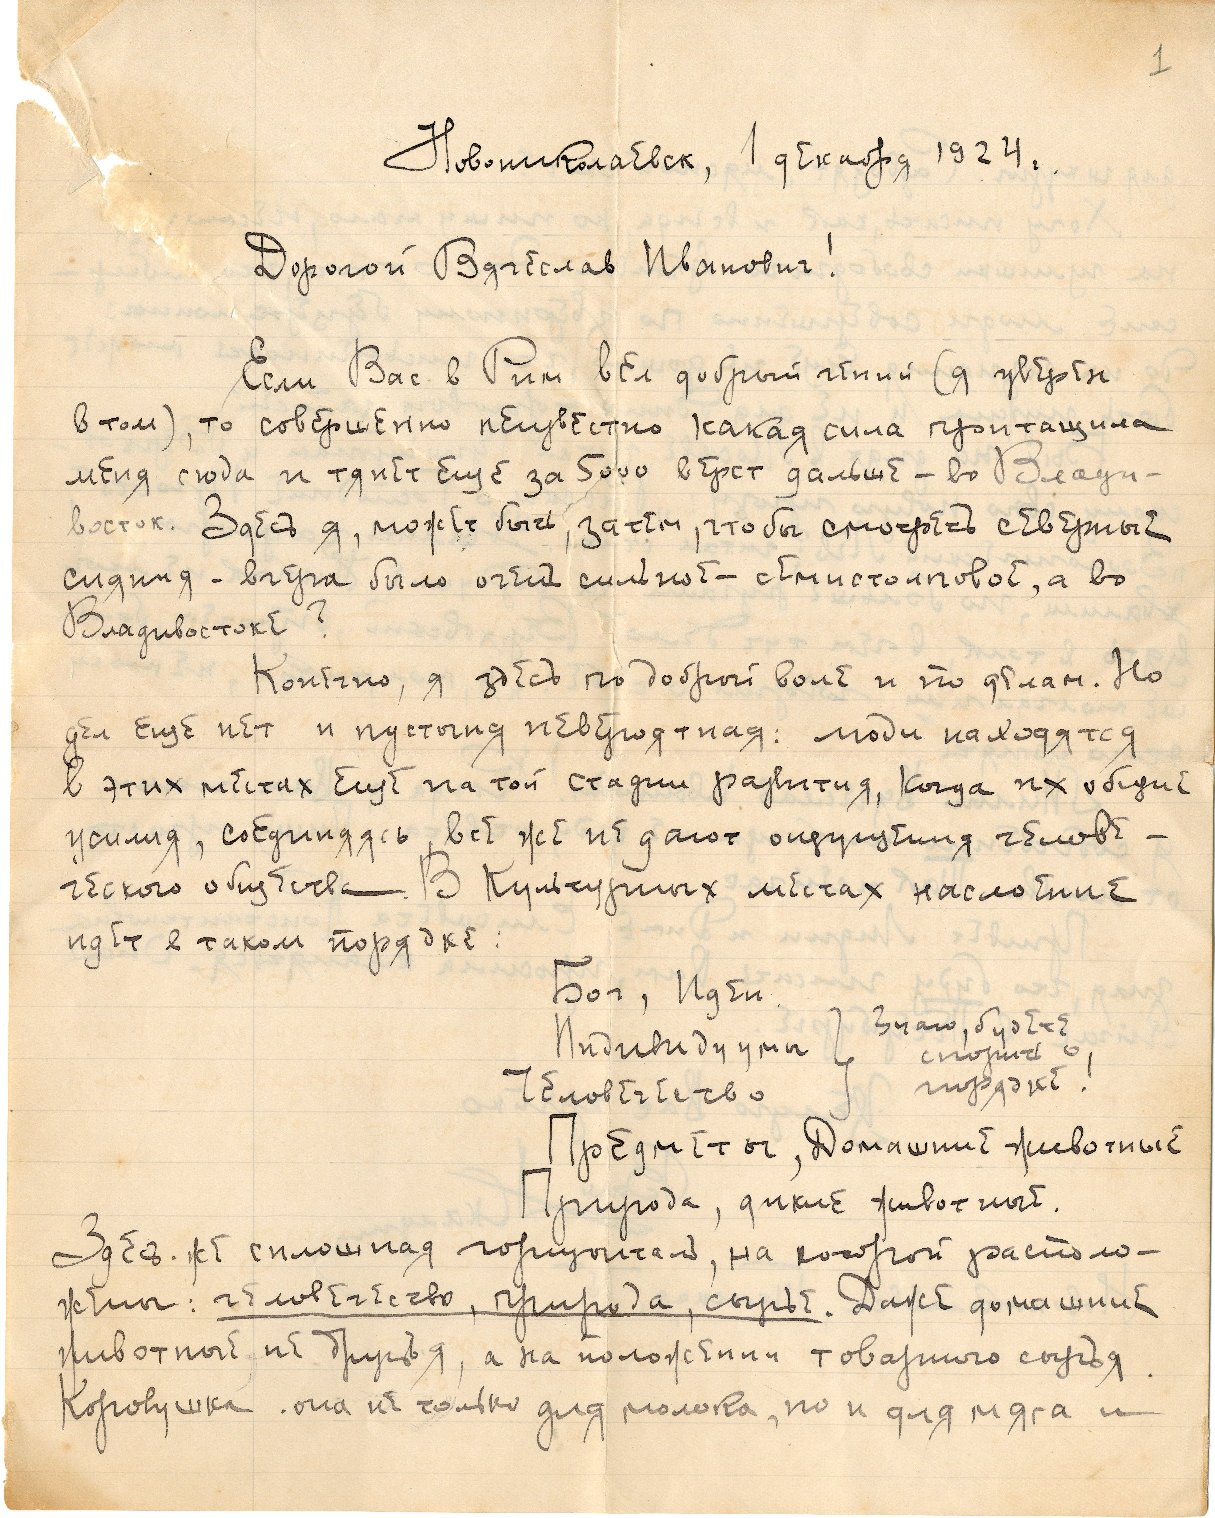 1
Новониколаевск, 1 декабря 1924.
Дорогой Вячеслав Иванович!
Если Вас в Рим вёл добрый гений (я уверен
в том), то совершенно неизвестно какая сила притащила
меня сюда и тянет еще за 5000 верст дальше – во Влади-
восток. Здесь я, может быть, затем, чтобы смотреть северные
сияния – вчера было очень сильное – семистолповое, а во
Владивостоке?
Конечно, я здесь по доброй воле и по делам. Но
дел еще нет и пустыня невероятная: люди находятся
в этих местах еще на той стадии развития, когда их общие
усилия, соединяясь, все же не дают ощущения челове-
ческого общества. В культурных местах наслоение
идет в таком порядке:
Бог, Идеи.
Индивидуумы } Знаю, будете
спорить о
Человечество } порядке!
Предметы, Домашние животные
Природа, дикие животные.
Здесь же сплошная горизонталь, на которой располо-
жены: человечество, природа, сырье. Даже домашние
животные не друзья, а на положении товарного сырья.
Коровушка она не только для молока, но и для мяса и